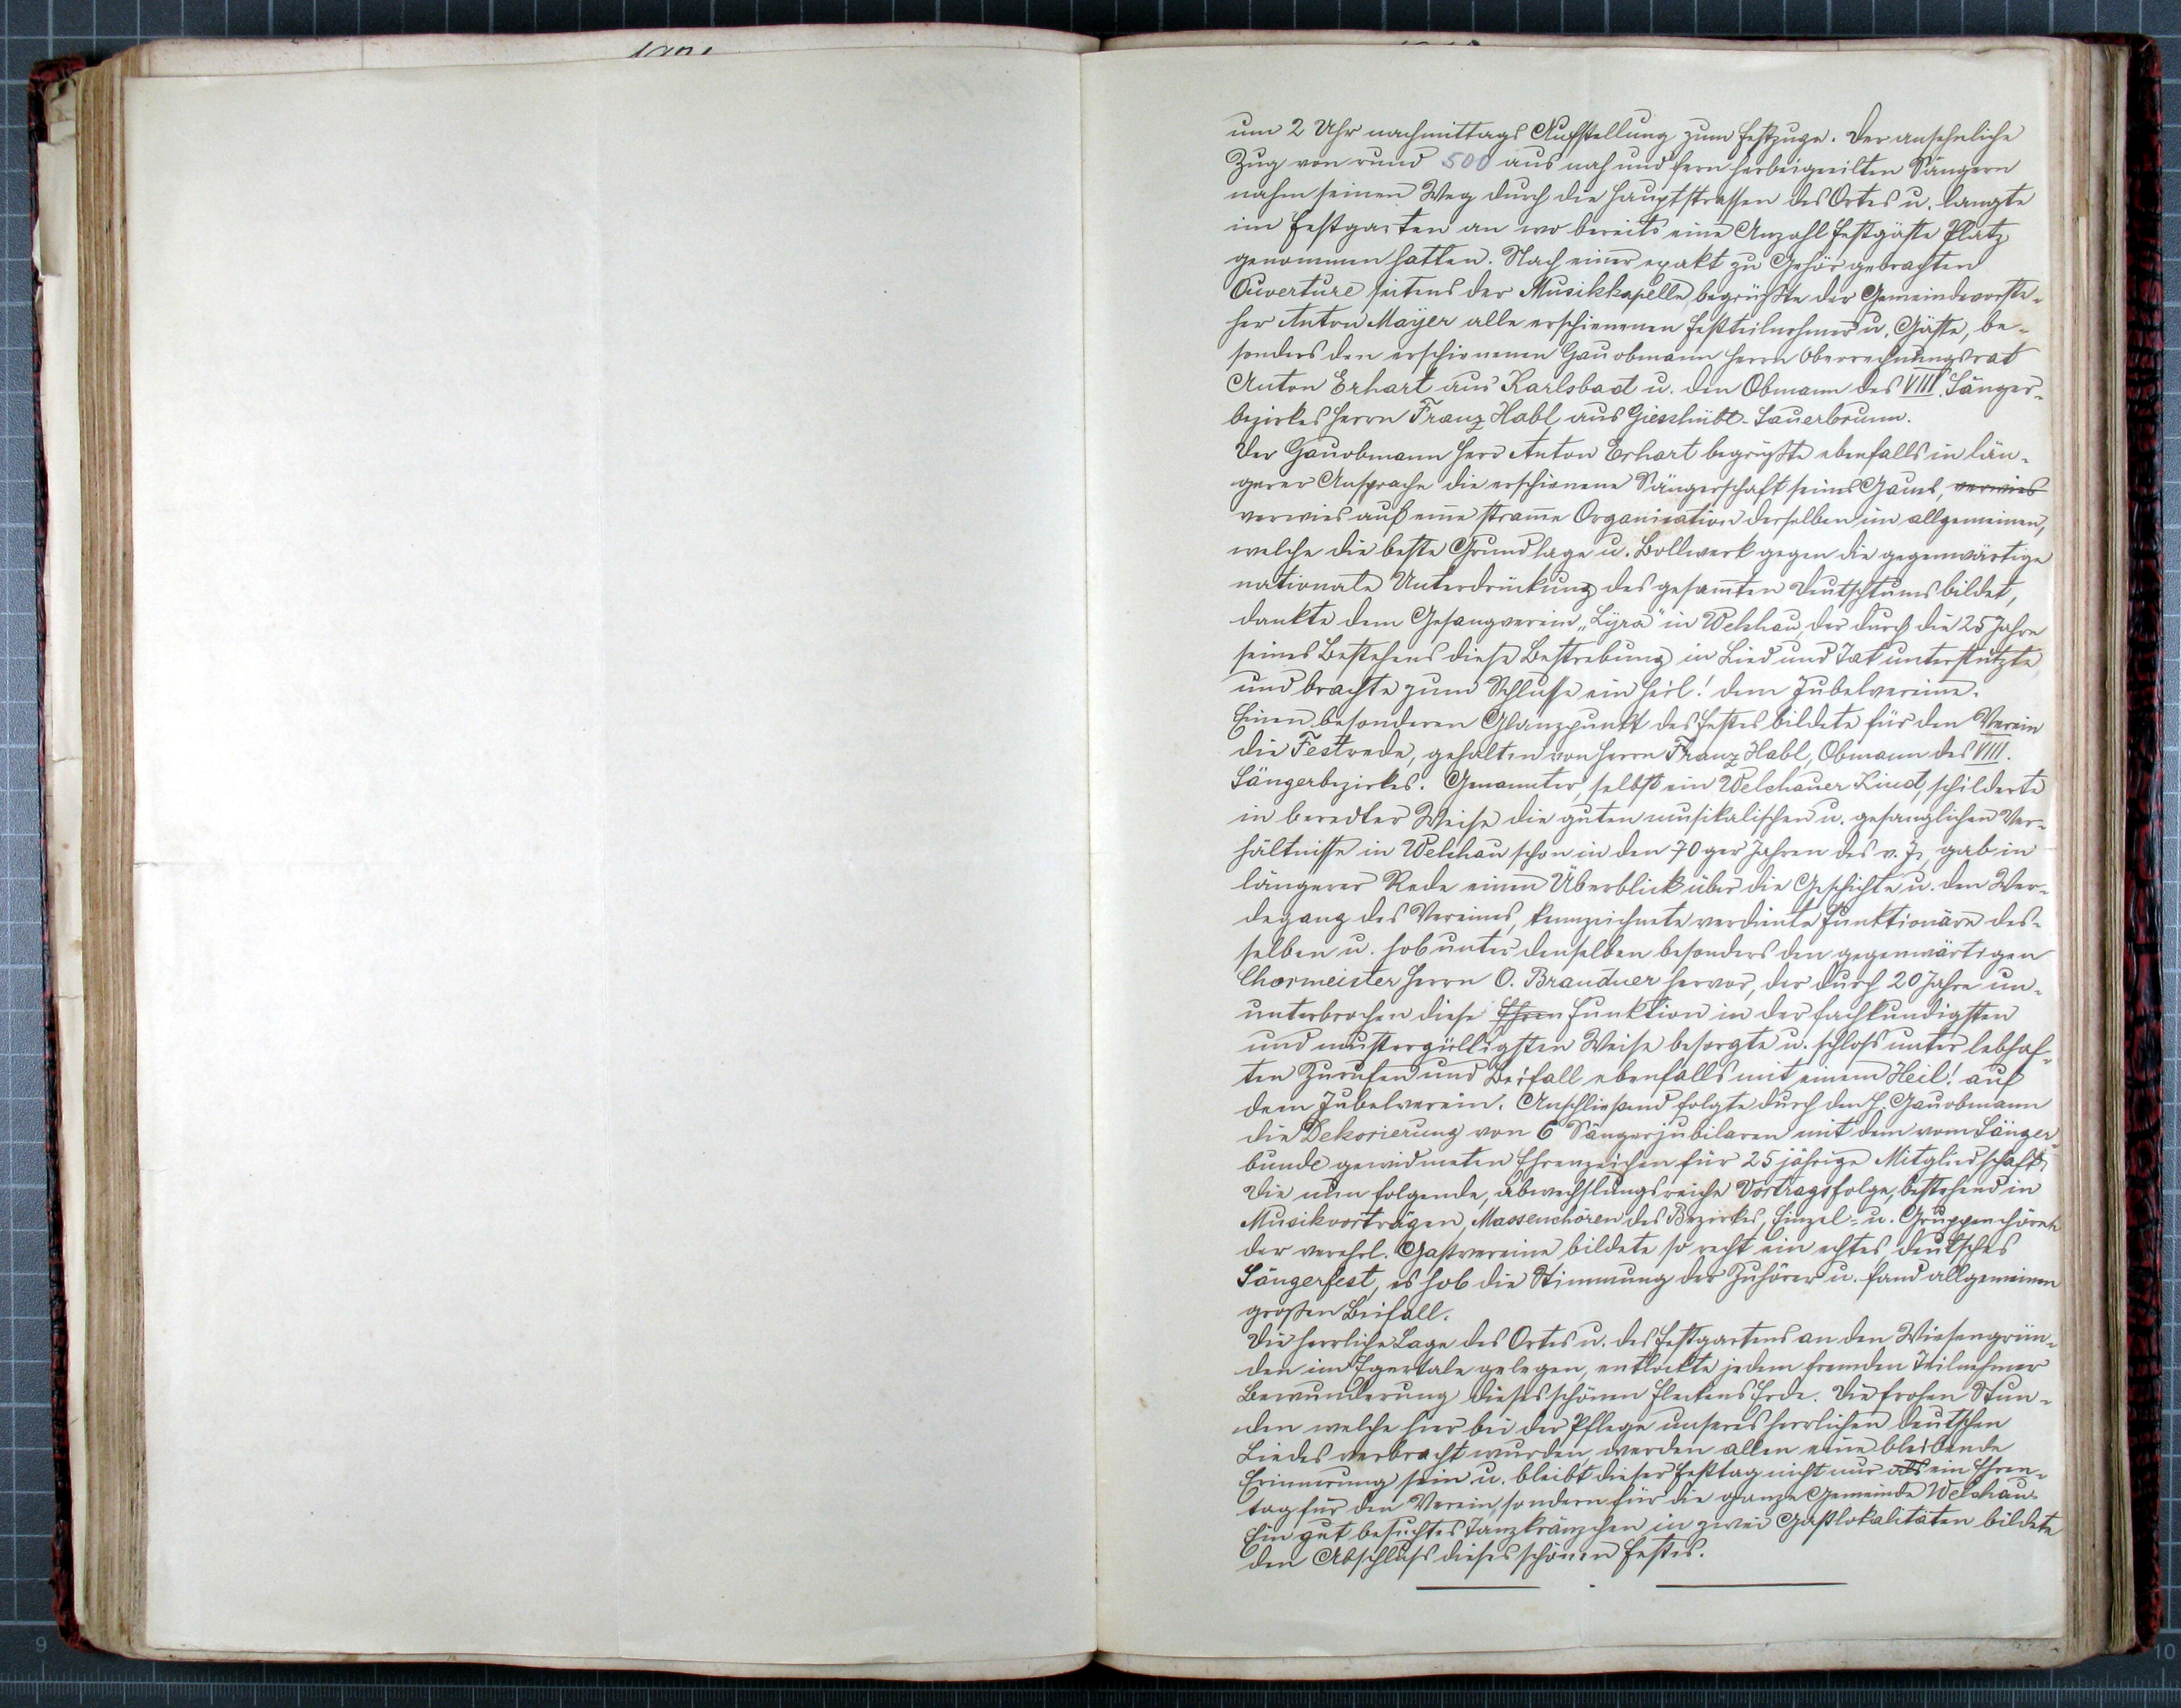 um 2 Uhr nachmittags Aufstellung zum Festzuge. Der ansehnliche
Zug von rund 500 aus nah und fern herbeigeeilten Sängern
nahm seinen Weg durch die Hauptstrassen des Ortes u. langte
im Festgarten an wo bereits eine Anzahl Festgäste Platz
genommen hatten. Nach einer exakt zu Gehör gebrachten
Ouverture seitens der Musikkapelle, begrüßte der Gemeindevorste-
her Anton Mayer alle erschienenen Festteilnehmer u. Gäste, be-
sonders den erschienenen Gauobmann Herrn Oberrechnungsrat
Anton Erhart aus Karlsbad u. den Obmann des VIII. Sänger-
bezirkes Herrn Franz Habl aus Giesshübl-Sauerbrunn.
Der Gauobmann Herr Anton Erhart begrüßte ebenfalls in län-
gerer Ansprache die erschienene Sängerschaft seines Gaues, verwies
verwies auf eine stramme Organisation derselben im allgemeinen,
welche die beste Grundlage u. Bollwerk gegen die gegenwärtige
nationale Unterdrückung des gesamten Deutschtums bildet,
dankte dem Gesangverein „Lyra" in Welchau, der durch die 25 Jahre
seines Bestehens diese Bestrebung in Lied und Tat unterstützte
und brachte zum Schlusse ein Heil! dem Jubelvereine.
Einen besonderen Glanzpunkt des Festes bildete für den Verein
die Festrede, gehalten von Herrn Franz Habl, Obmann des VIII.
Sängerbezirkes. Genannter, selbst ein Welchauer Kind, schilderte
in beredter Weise die guten musikalischen u. gesanglichen Ver-
hältnisse in Welchau schon in den 70ger Jahren des v. J., gab in
längerer Rede einen Überblick über die Geschichte u. den Wer-
degang des Vereines, kennzeichnete verdiente Funktionäre des-
selben u. hob unter denselben besonders den gegenwärtigen
Chormeister Herrn O. Brandner hervor, der durch 20 Jahre un-
unterbrochen diese Ehren Funktion in der fachkundigsten
und mustergülligsten Weise besorgte u. schloss unter lebhaf-
ten Zurufen und Beifall ebenfalls mit einem Heil! auf
dem Jubelverein. Anschließend folgte durch den H. Gauobmann
die Dekorierung von 6 Sängerjubilaren mit dem vom Sänger-
bunde gewidmeten Ehrenzeichen für 25 jährige Mitgliedschaft.
Die nun folgende, abwechslungsreiche Vortragsfolge, bestehend in
Musikvorträgen, Massenchören des Bezirkes, Einzel- u. Gruppenchören
der verehrl. Gastvereine bildete so recht ein echtes deutsches
Sängerfest, es hob die Stimmung der Zuhörer u. fand allgemeinen
großen Beifall.
Die herrliche Lage des Ortes u. des Festgartens an den Wiesengrün-
den im Egertale gelegen, entlockte jedem fremden Teilnehmer
Bewunderung dieses schönen Fleckens Erde. Die frohen Stun-
den welche hier bei der Pflege unseres herrlichen deutschen
Liedes verbracht wurden, werden allen eine bleibende
Erinnerung sein u. bleibt dieser Festtag nicht nur als ein Ehren-
tag für den Verein, sondern für die ganze Gemeinde Welchau.
Ein gut besuchtes Tanzkränzchen in zwei Gastlokalitäten bildete
den Abschluss dieses schönen Festes.